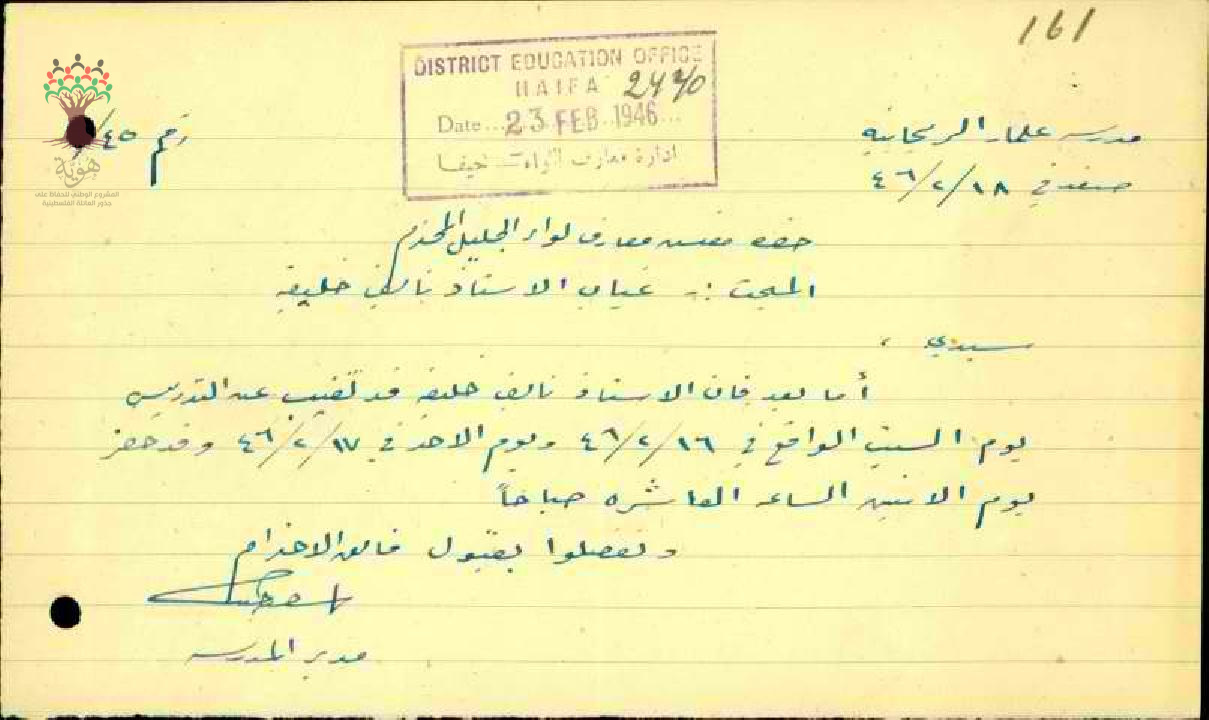 161
DISTRICT EDUCATION OFFICE
HAIFA 2470
Date...23 FEB 1946...
ادارة معارف لواء حيفا
هوية
المشروع الوطني للحفاظ على
جذور العائلة الفلسطينية
رقم ٤٥/
مدرسة علما الريحانية
صفد في ١٨/٢/٤٦
حضرة مفتش معارف لواء الجليل المحترم
المبحث :- غياب الاستاذ نايف خليفة
سيدي ،
أما بعد فان الاستاذ نايف خليفة قد تغيب عن التدريس
يوم السبت الواقع في ١٦/٢/٤٦ ويوم الاحد في ١٧/٢/٤٦ وقد حضر
يوم الاثنين الساعة العاشرة صباحاً
وتفضلوا بقبول فائق الاحترام
مدير المدرسة